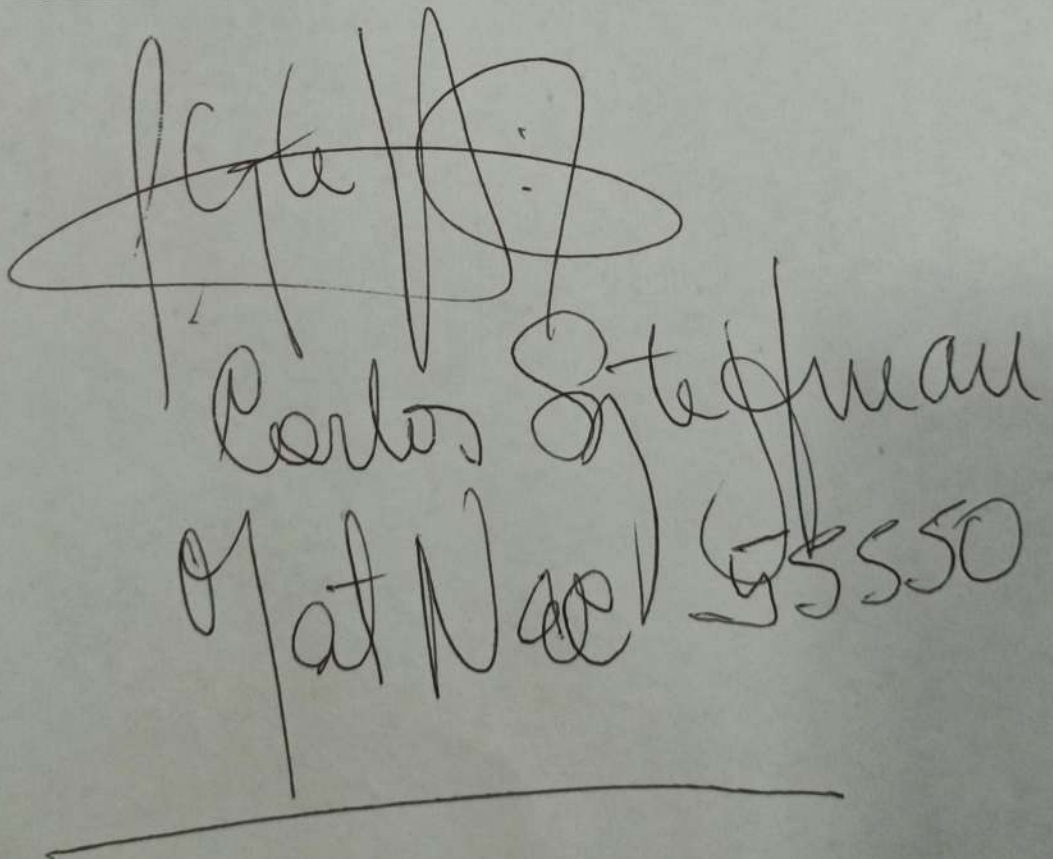 Carlos Steffman
Mat Nac 55550